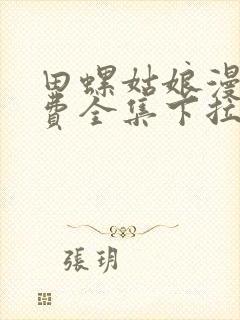 田螺姑娘漫
费全集下拉
張玥